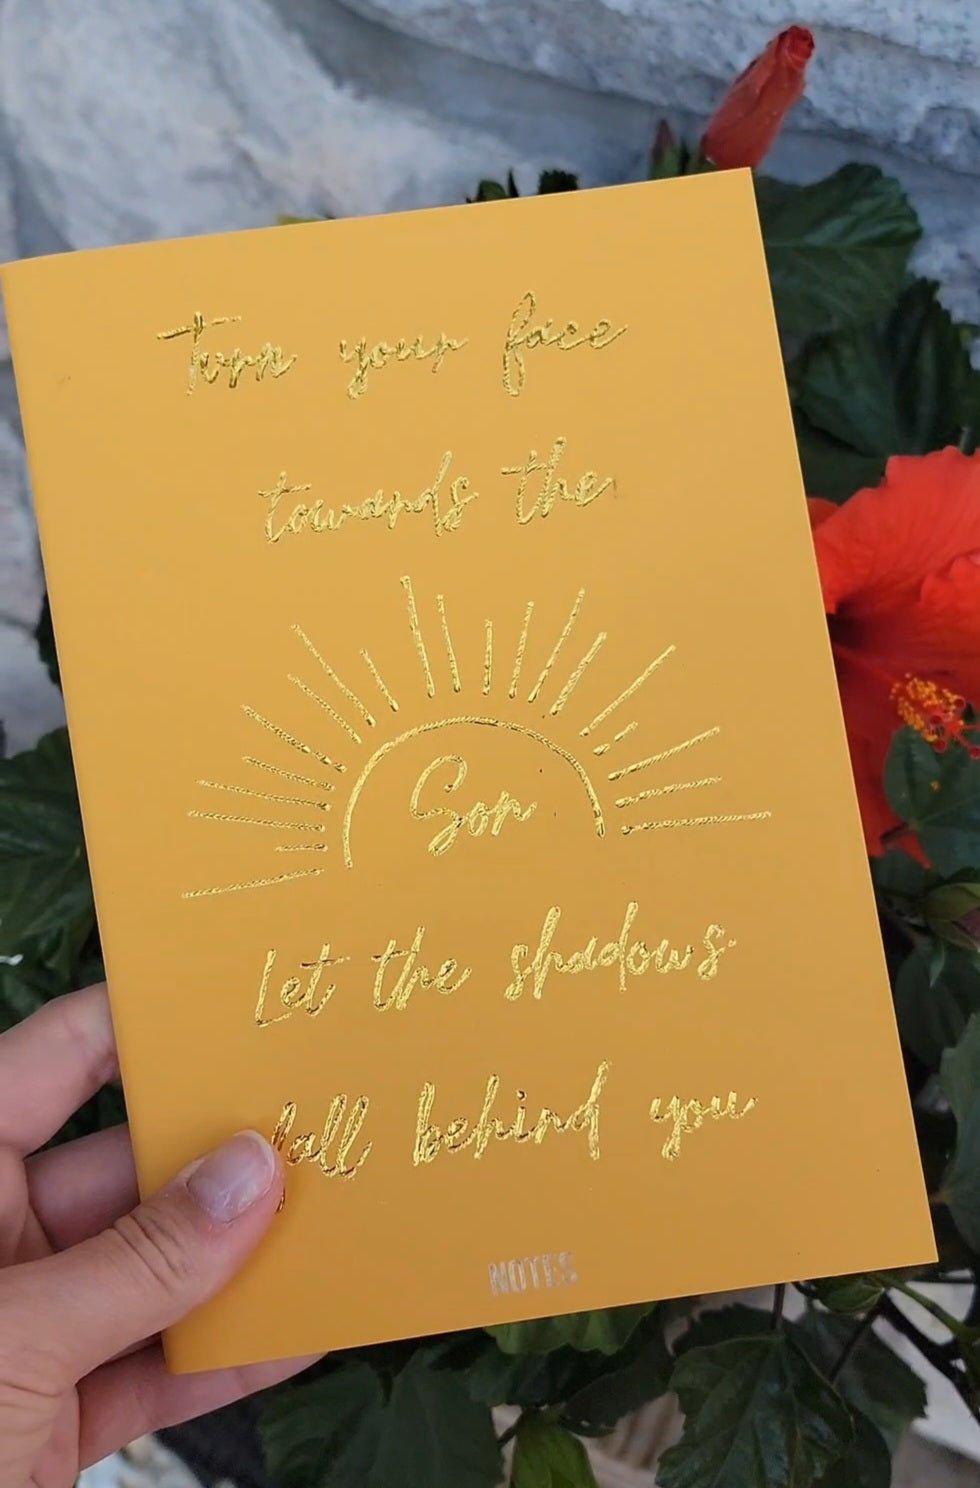 Turn your face
towards the
Son
Let the shadows
fall behind you
NOTES